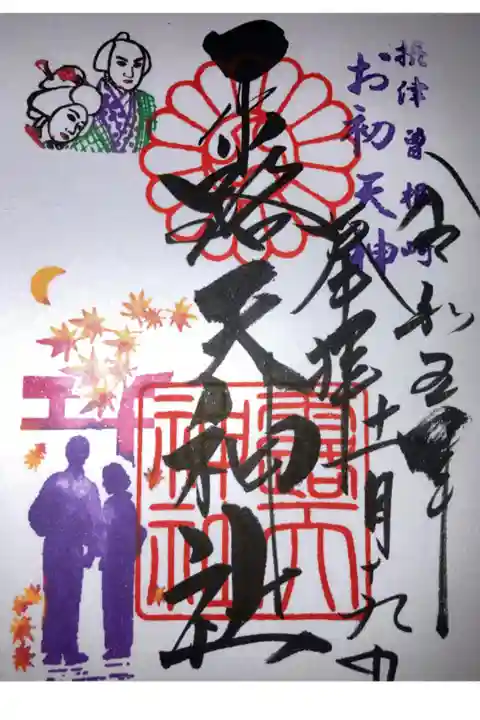 摂津曽根崎
お初天神
令和五年
十一月二九日
奉拝
露天神社
露天
神社